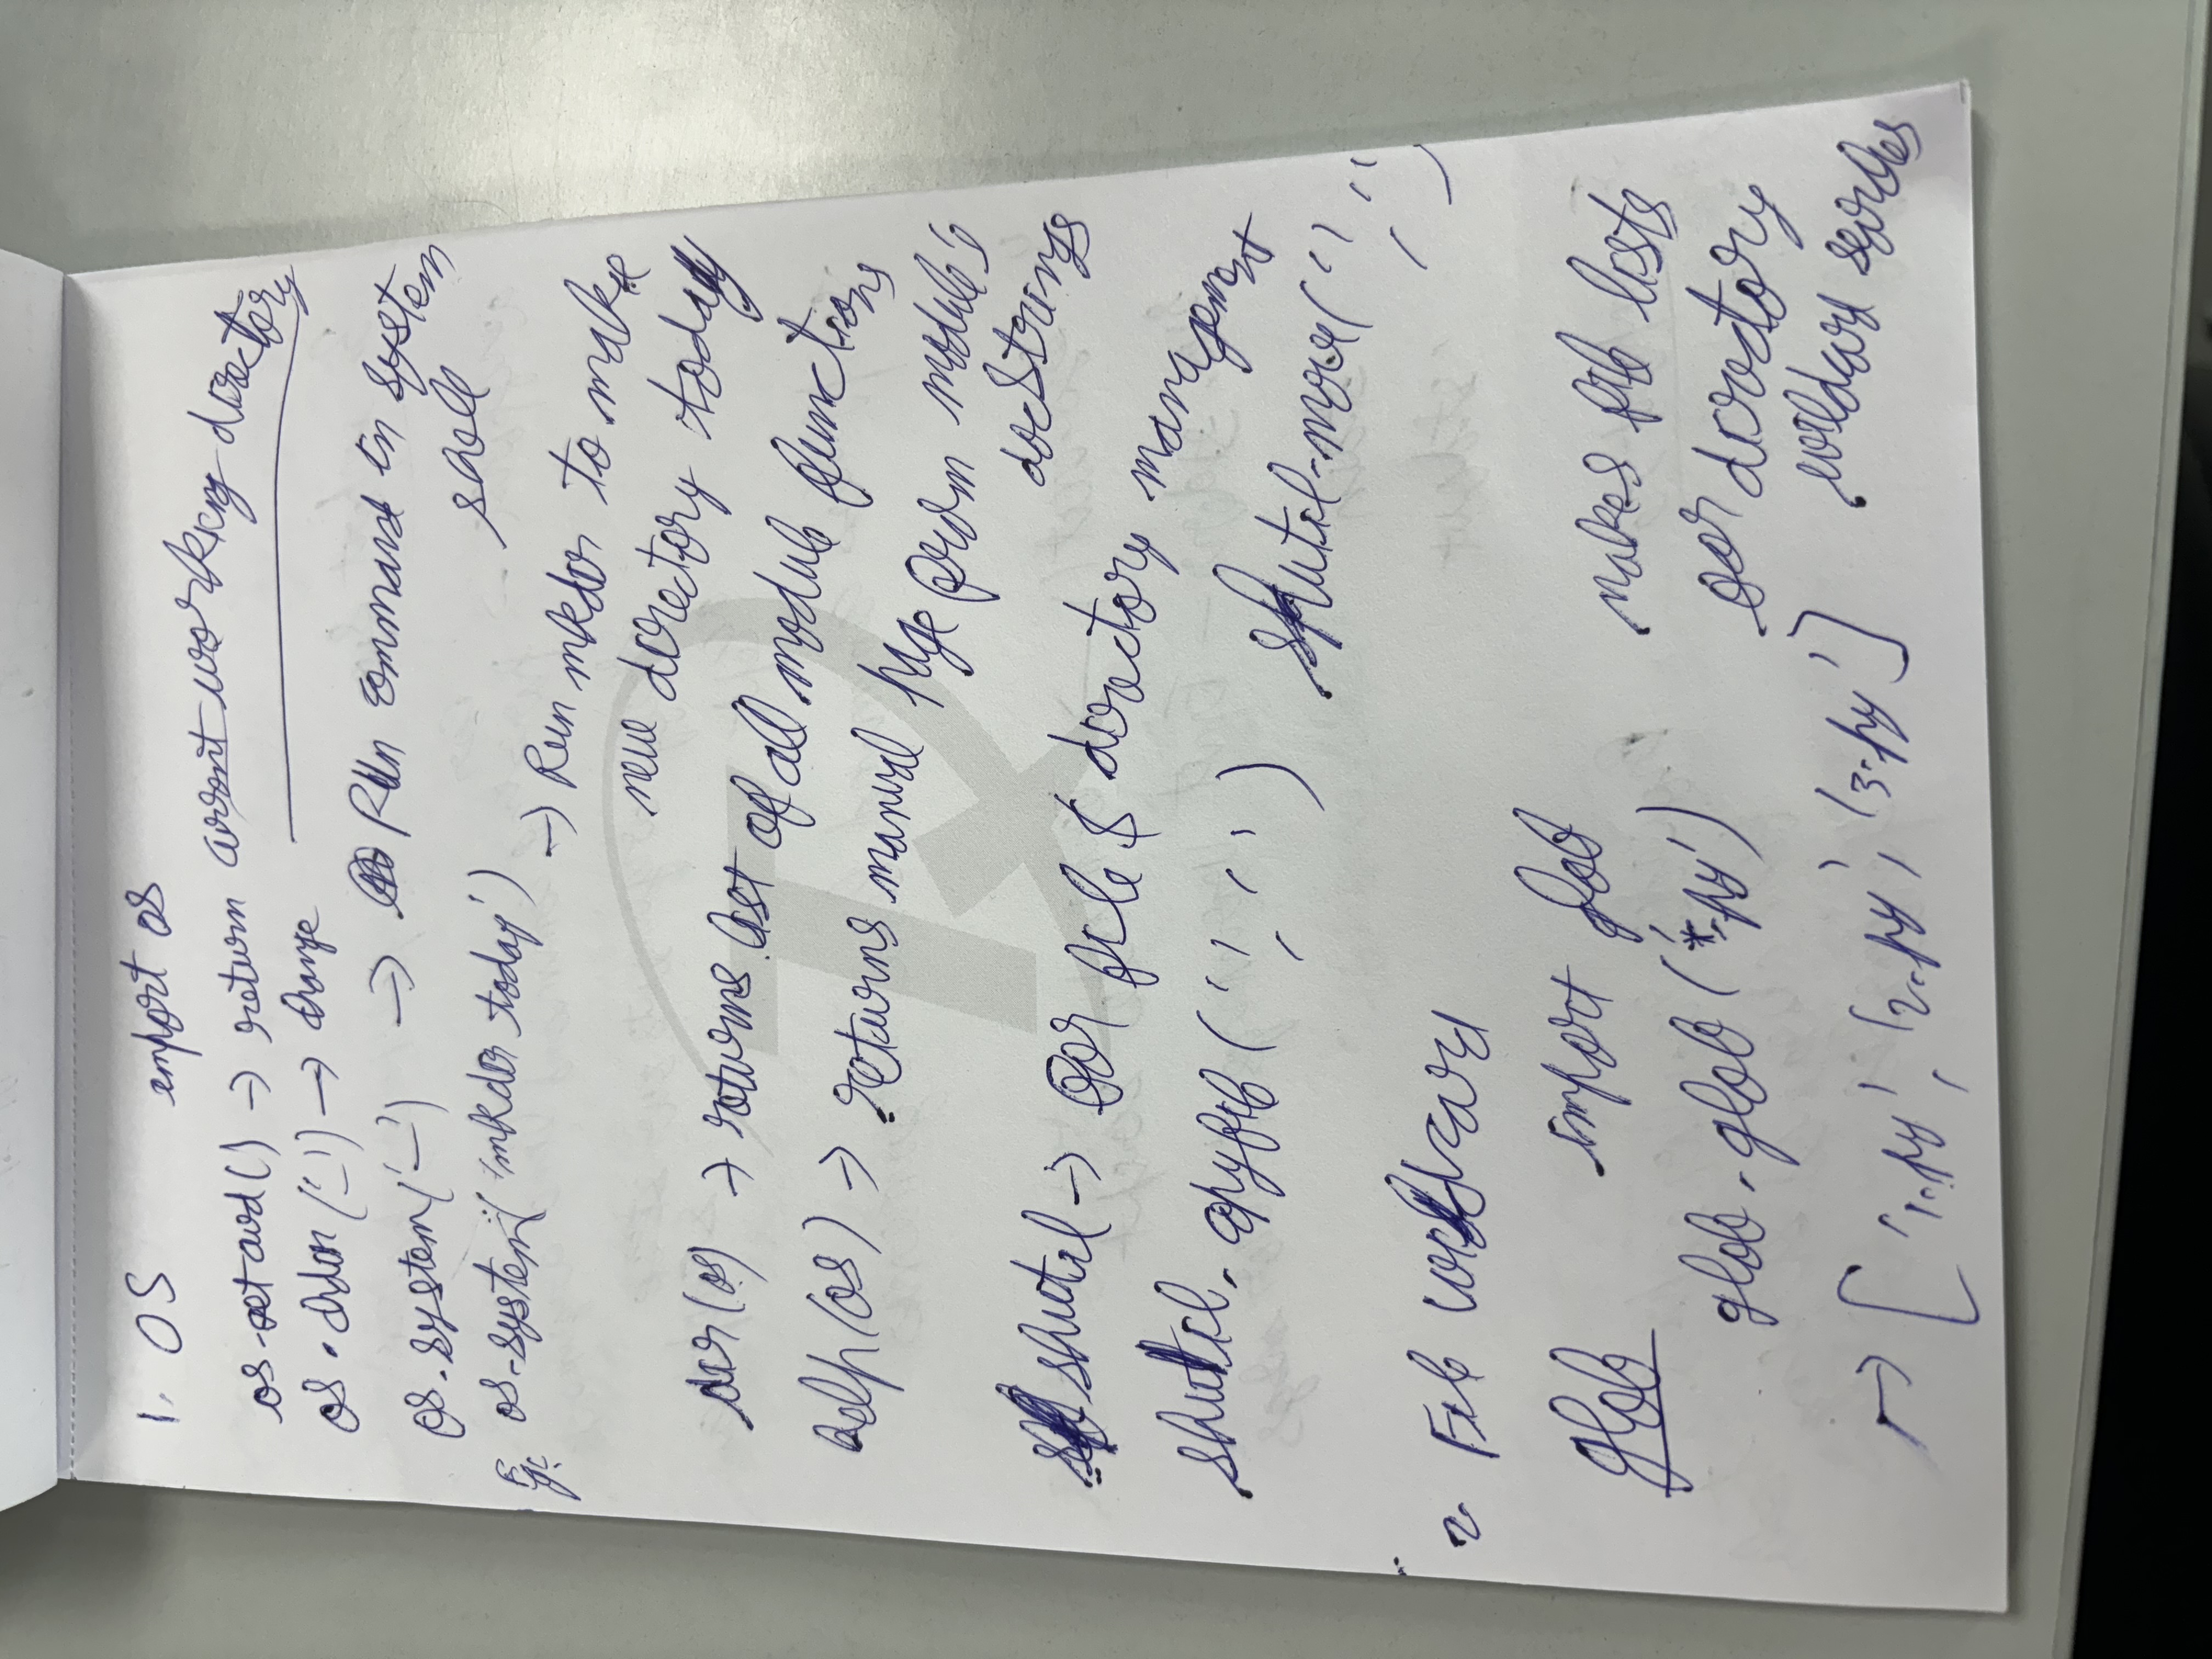 1. OS import os
os.getcwd() → return current working directory
os.chdir('_') → change
os.system('_') → Run command in system
shell
Eg: os.system('mkdir today')
→ Run mkdir to make
new directory today
dir(os) → returns list of all module functions
help(os) → returns manual page from module's
docstrings
shutil → for file & directory management
shutil.copyfile('', '') shutil.move('', '')
2. File wildcard
glob import glob
makes file lists
glob.glob('*.py')
for directory
wildcard searches
→ ['1.py', '2.py', '3.py']